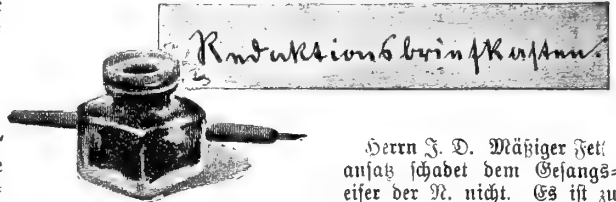 Redaktionsbriefkasten.
Herrn J. D. Mäßiger Fett
ansatz schadet dem Gesangs=
eifer der N. nicht. Es ist zu